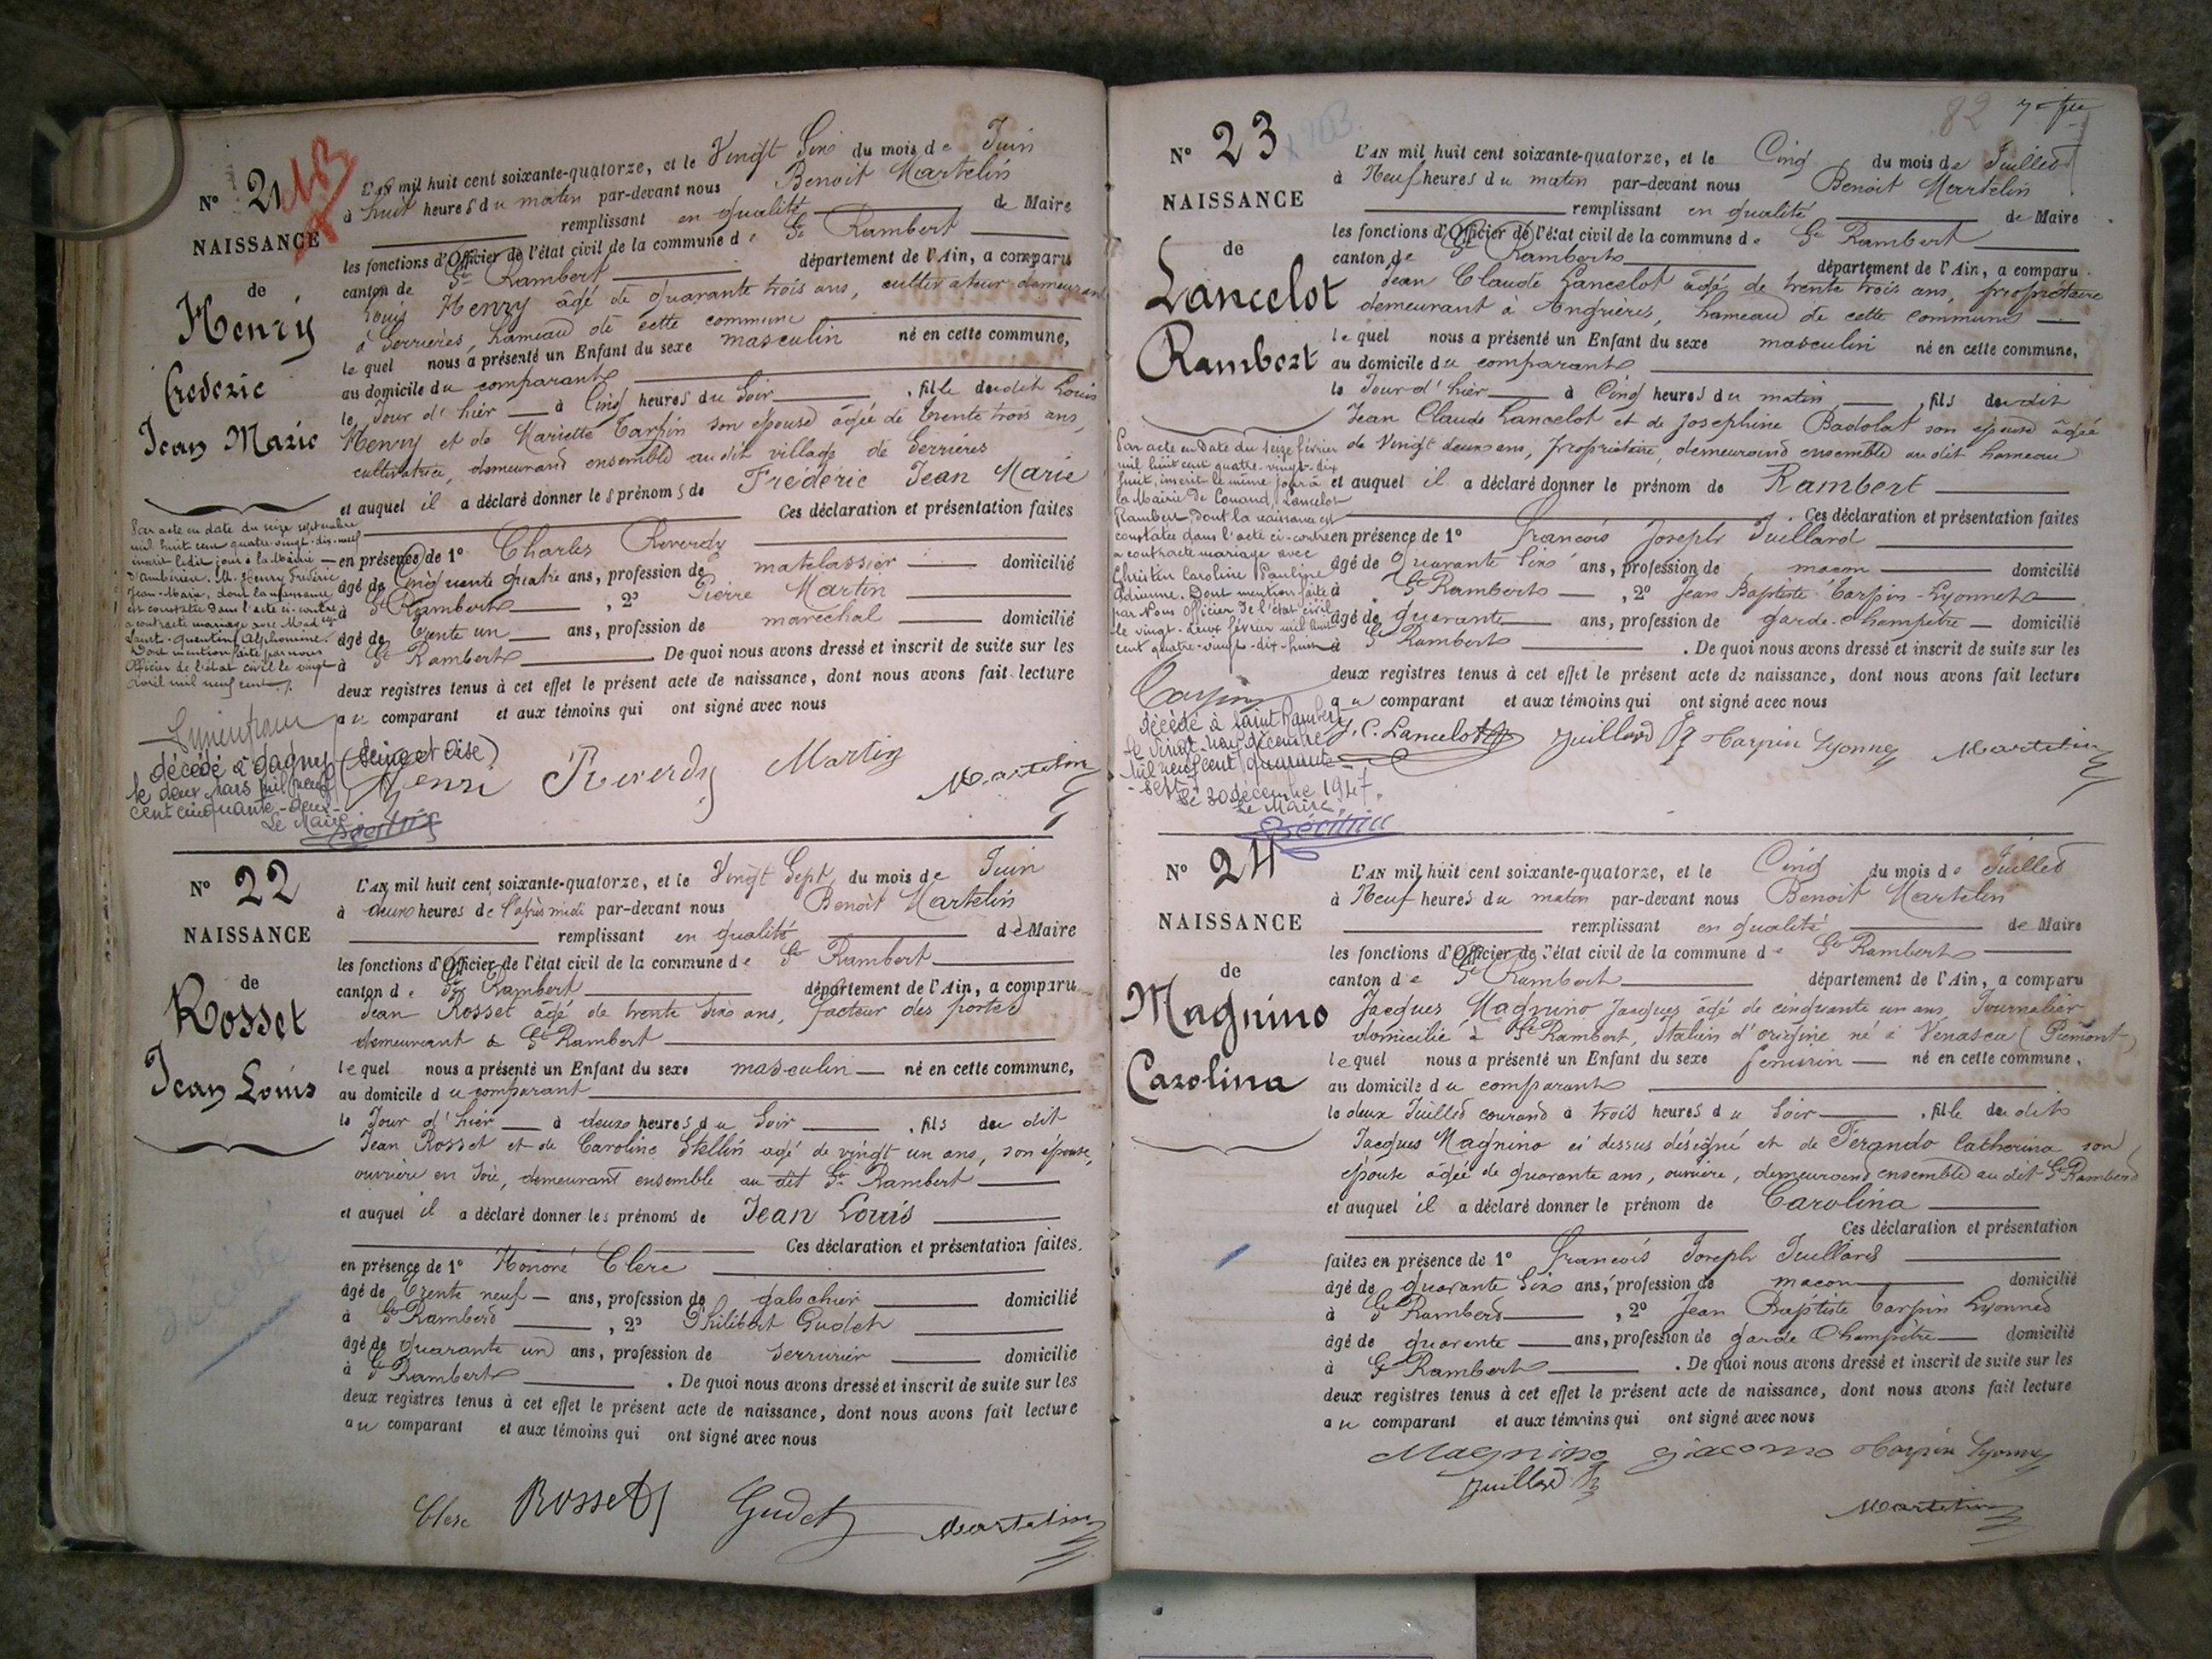 N° 21
NAISSANCE
de
Henry
Frederic
Jean Marie
L'AN mil huit cent soixante-quatorze, et le Vingt Six du mois de Juin
à huit heures du matin par-devant nous Benoit Martelin
remplissant en qualité de Maire
les fonctions d'Officier de l'état civil de la commune de St Rambert
canton de St Rambert département de l'Ain, a comparu
Louis Henry âgé de quarante trois ans, cultivateur demeurant
à Serrières, hameau de cette commune
lequel nous a présenté un Enfant du sexe masculin né en cette commune,
au domicile du comparant
le Jour d'hier à Cinq heures du Soir, fils dudit Louis
Henry et de Mariette Carpin son épouse âgée de trente trois ans,
cultivatrice, demeurand ensemble audit village de Serrières
et auquel il a déclaré donner les prénoms de Frédéric Jean Marie
Ces déclaration et présentation faites
en présence de 1° Charles Reverdy
âgé de Cinquante quatre ans, profession de matelassier domicilié
à St Rambert, 2° Pierre Martin
âgé de trente un ans, profession de maréchal domicilié
à St Rambert De quoi nous avons dressé et inscrit de suite sur les
deux registres tenus à cet effet le présent acte de naissance, dont nous avons fait lecture
au comparant et aux témoins qui ont signé avec nous
Par acte en date du seize septembre
mil huit cent quatre-vingt-dix-neuf
inscrit ledit jour à la Mairie
d'Ambérieu, M. Henry Frédéric
Jean-Marie, dont la naissance
est constatée dans l'acte ci-contre
a contracté mariage avec Mad
Quentin Alphonsine.
Dont mention faite par nous
Officier de l'état civil le vingt
Avril mil neuf cent
décédé à Gagny (Seine et Oise)
le deux Mars mil neuf
cent cinquante-deux
Le Maire
Henri Reverdy Martin Martelin
N° 22
NAISSANCE
de
Rosset
Jean Louis
L'AN mil huit cent soixante-quatorze, et le Vingt Sept du mois de Juin
à deux heures de l'après midi par-devant nous Benoît Martelin
remplissant en qualité de Maire
les fonctions d'Officier de l'état civil de la commune de St Rambert
canton de St Rambert département de l'Ain, a comparu
Jean Rosset âgé de trente Six ans, facteur des postes
demeurant à St Rambert
lequel nous a présenté un Enfant du sexe masculin né en cette commune,
au domicile du comparant
le Jour d'hier à deux heures du Soir, fils du dit
Jean Rosset et de Caroline Stellin agé de vingt un ans, son épouse,
ouvrière en Soie, demeurant ensemble au dit St Rambert
et auquel il a déclaré donner les prénoms de Jean Louis
Ces déclaration et présentation faites,
en présence de 1° Honoré Clerc
âgé de Trente neuf ans, profession de galochier domicilié
à St Rambert, 2° Philibert Gudet
âgé de quarante un ans, profession de Serrurier domicilié
à St Rambert. De quoi nous avons dressé et inscrit de suite sur les
deux registres tenus à cet effet le présent acte de naissance, dont nous avons fait lecture
au comparant et aux témoins qui ont signé avec nous
Clerc Rosset Gudet Martelin
82
N° 23
NAISSANCE
de
Lancelot
Rambert
L'AN mil huit cent soixante-quatorze, et le Cinq du mois de Juillet
à Neuf heures du matin par-devant nous Benoit Martelin
remplissant en qualité de Maire
les fonctions d'Officier de l'état civil de la commune de St Rambert
canton de St Rambert département de l'Ain, a comparu
Jean Claude Lancelot âgé de trente trois ans, propriétaire
demeurant à Angrières, hameau de cette commune
lequel nous a présenté un Enfant du sexe masculin né en cette commune,
au domicile du comparant
le Jour d'hier à Cinq heures du matin, fils dudit
Jean Claude Lancelot et de Josephine Badolat son épouse âgée
de Vingt deux ans, propriétaire, demeurand ensemble au dit hameau
et auquel il a déclaré donner le prénom de Rambert
Ces déclaration et présentation faites
en présence de 1° François Joseph Juillard
âgé de Quarante Six ans, profession de macon domicilié
à St Rambert, 2° Jean Baptiste Carpin-Lyonnet
âgé de quarante ans, profession de garde-champêtre domicilié
à St Rambert. De quoi nous avons dressé et inscrit de suite sur les
deux registres tenus à cet effet le présent acte de naissance, dont nous avons fait lecture
au comparant et aux témoins qui ont signé avec nous
Par acte en Date du seize février
mil huit cent quatre-vingt-dix
huit, inscrit le même jour à
la Mairie de Conand, Lancelot
Rambert, dont la naissance est
constatée dans l'acte ci-contre
a contracté mariage avec
Christin Caroline Pauline
Adrienne. Dont mention faite
par Nous Officier de l'état civil
le vingt-deux février mil huit
cent quatre-vingt-dix-huit
décédé à Saint Rambert
le vingt-neuf décembre
mil neuf cent quarante
-sept.
Le 30 décembre 1947.
Le Maire,
J. C. Lancelot Juillard Carpin Lyonnet Martelin
N° 24
NAISSANCE
de
Magnino
Carolina
L'AN mil huit cent soixante-quatorze, et le Cinq du mois de Juillet
à Neuf heures du matin par-devant nous Benoit Martelin
remplissant en qualité de Maire
les fonctions d'Officier de l'état civil de la commune de St Rambert
canton de St Rambert département de l'Ain, a comparu
Jacques Magnino Jacques âgé de cinquante un ans, Journalier
domicilié à St Rambert, Italien d'origine né à Venasca (Piémont)
lequel nous a présenté un Enfant du sexe feminin né en cette commune,
au domicile du comparant
le deux Juillet courand à trois heures du Soir, fille dudit
Jacques Magnino ci dessus désigné et de Ferando Catherina son
épouse âgée de quarante ans, ouvrière, demeurand ensemble au dit St Rambert
et auquel il a déclaré donner le prénom de Carolina
Ces déclaration et présentation
faites en présence de 1° François Joseph Juillard
âgé de quarante Six ans, profession de macon domicilié
à St Rambert, 2° Jean Baptiste Carpin Lyonnet
âgé de quarante ans, profession de garde Champêtre domicilié
à St Rambert. De quoi nous avons dressé et inscrit de suite sur les
deux registres tenus à cet effet le présent acte de naissance, dont nous avons fait lecture
au comparant et aux témoins qui ont signé avec nous
Magnino giacomo Carpin Lyonnet
Juillard
Martelin